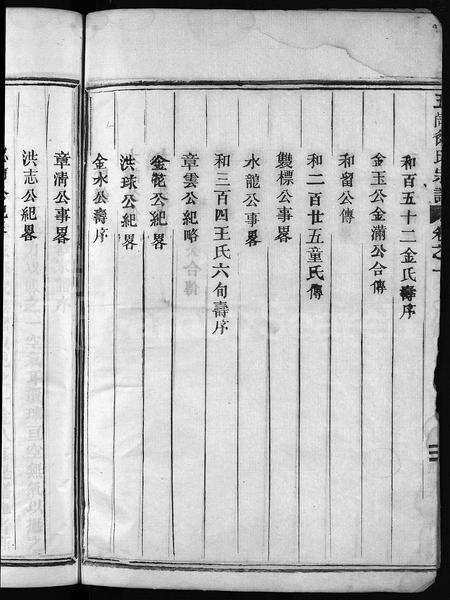 和百五十二金氏壽序
金玉公金滿公合傳
和留公傳
和二百廿五童氏傳
雙標公事畧
水龍公事畧
和三百四王氏六旬壽序
章雲公紀略
金花公紀畧
洪球公紀畧
金水公壽序
章清公事畧
洪志公紀畧